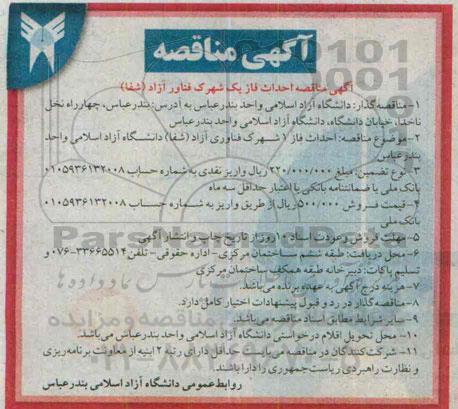 آگهی مناقصه
آگهی مناقصه احداث فاز یک شهرک فناور آزاد (شفا)
۱- مناقصه‌گذار: دانشگاه آزاد اسلامی واحد بندرعباس به آدرس: بندرعباس، چهارراه نخل
ناخدا، خیابان دانشگاه، دانشگاه آزاد اسلامی واحد بندرعباس
۲- موضوع مناقصه: احداث فاز ۱ شهرک فناوری آزاد (شفا) دانشگاه آزاد اسلامی واحد
بندرعباس
۳- نوع تضمین: مبلغ ۲۲۰/۰۰۰/۰۰۰ ریال واریز نقدی به شماره حساب ۰۱۰۵۹۳۶۱۳۲۰۰۸
بانک ملی یا ضمانتنامه بانکی با اعتبار حداقل سه ماه
۴- قیمت فروش ۵۰۰/۰۰۰ ریال از طریق واریز به شماره حساب ۰۱۰۵۹۳۶۱۳۲۰۰۸
بانک ملی
۵- مهلت فروش و عودت اسناد ۱۰ روز از تاریخ چاپ و انتشار آگهی
۶- محل دریافت: طبقه ششم ساختمان مرکزی- اداره حقوقی- تلفن ۳۳۶۶۵۵۱۴-۰۷۶ و
تسلیم پاکات: دبیرخانه طبقه همکف ساختمان مرکزی
۷- هزینه درج آگهی به عهده برنده می‌باشد.
۸- مناقصه‌گذار در رد و قبول پیشنهادات اختیار کامل دارد.
۹- سایر شرایط مطابق اسناد مناقصه می‌باشد.
۱۰- محل تحویل اقلام درخواستی دانشگاه آزاد اسلامی واحد بندرعباس می‌باشد.
۱۱- شرکت‌کنندگان در مناقصه می‌بایست حداقل دارای رتبه ۲ ابنیه از معاونت برنامه‌ریزی
و نظارت راهبردی ریاست‌جمهوری را دارا باشند.
روابط عمومی دانشگاه آزاد اسلامی بندرعباس